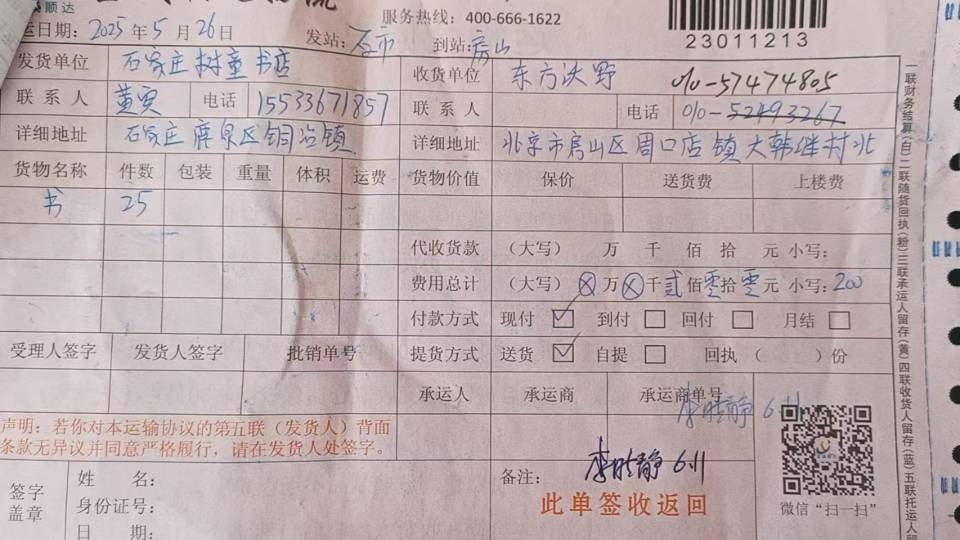 顺达
服务热线：400-666-1622
23011213
运日期：2025年5月26日 发站：石市 到站：房山
发货单位 石家庄树童书店 收货单位 东方沃野 010-57474805
联系人 黄 电话 15533671857 联系人 电话 010-52493267
详细地址 石家庄鹿泉区铜冶镇 详细地址 北京市房山区周口店镇大韩继村北
货物名称 件数 包装 重量 体积 运费 货物价值 保价 送货费 上楼费
书 25
代收货款 （大写） 万 千 佰 拾 元 小写：
费用总计 （大写）⊗万⊗千贰佰零拾零元 小写：200
付款方式 现付 ☑ 到付 □ 回付 □ 月结 □
受理人签字 发货人签字 批销单号 提货方式 送货 ☑ 自提 □ 回执（ ）份
承运人 承运商 承运商单号
静 6.11
声明：若你对本运输协议的第五联（发货人）背面
条款无异议并同意严格履行，请在发货人处签字。
签字
盖章
姓 名：
身份证号：
日 期：
备注： 静 6.11
此单签收返回
微信“扫一扫”
一联财务结算（白）二联随货回执（粉）三联承运人留存（黄）四联收货人留存（蓝）五联托运人留